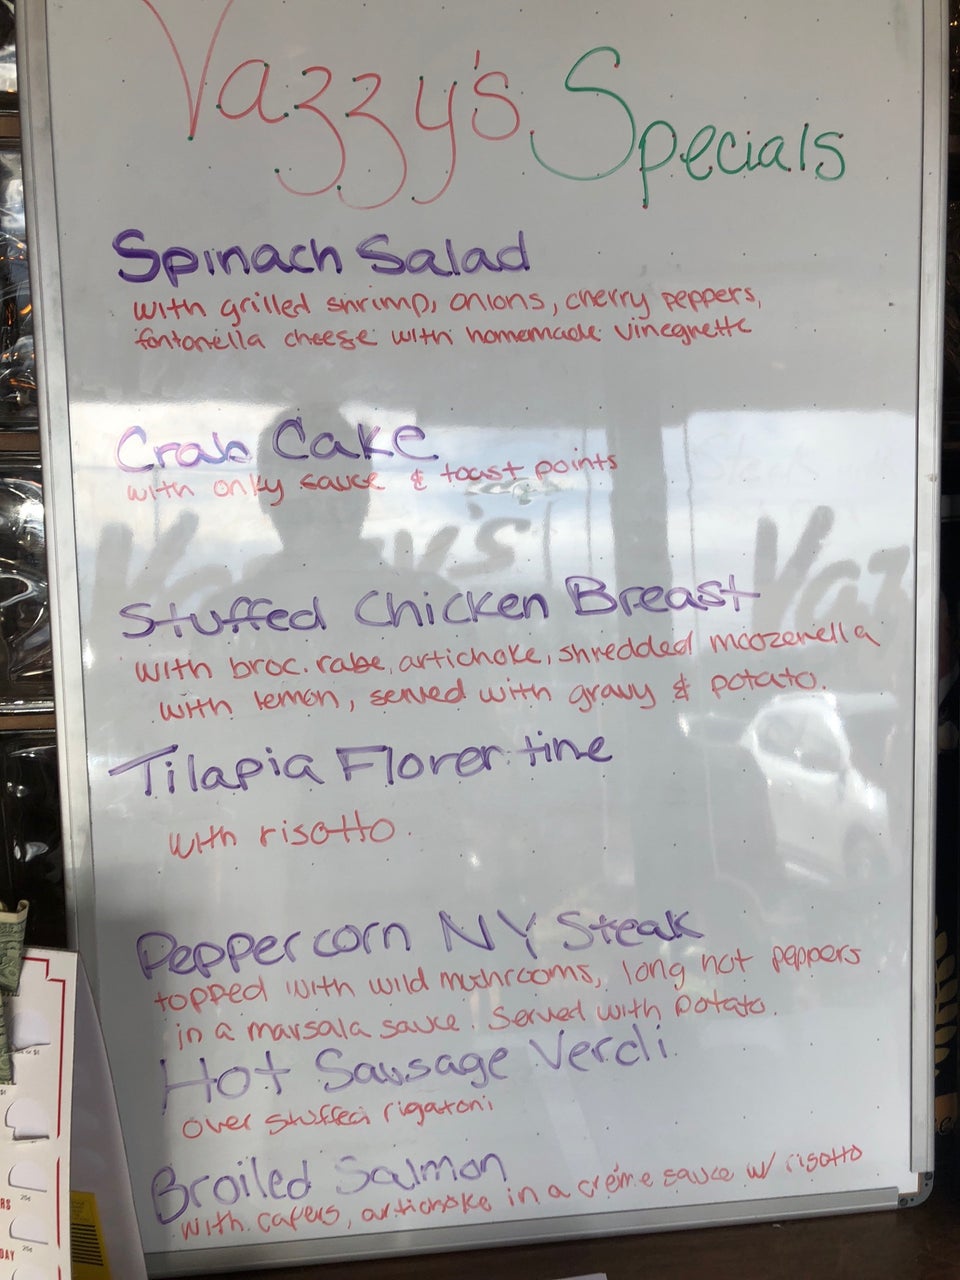 Vazzy's Specials
Spinach Salad
with grilled shrimp, onions, cherry peppers,
fontanella cheese with homemade vinegrette
Crab Cake
with only sauce & toast points
Stuffed Chicken Breast
with broc. rabe, artichoke, shredded moozerella
with lemon, served with gravy & potato.
Tilapia Florentine
with risotto.
Peppercorn NY Steak
topped with wild mushrooms, long hot peppers
in a marsala sauce. Served with potato.
Hot Sausage Verdi
over stuffed rigatoni
Broiled Salmon
with capers, artichoke in a créme sauce w/ risotto